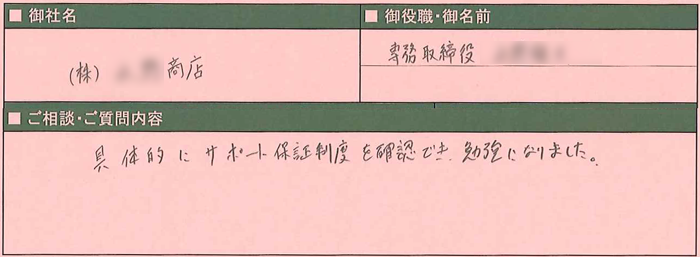 ■ 御社名
■ 御役職・御名前
(株) 商店
専務取締役
■ ご相談・ご質問内容
具体的にサポート保証制度を確認でき、勉強になりました。